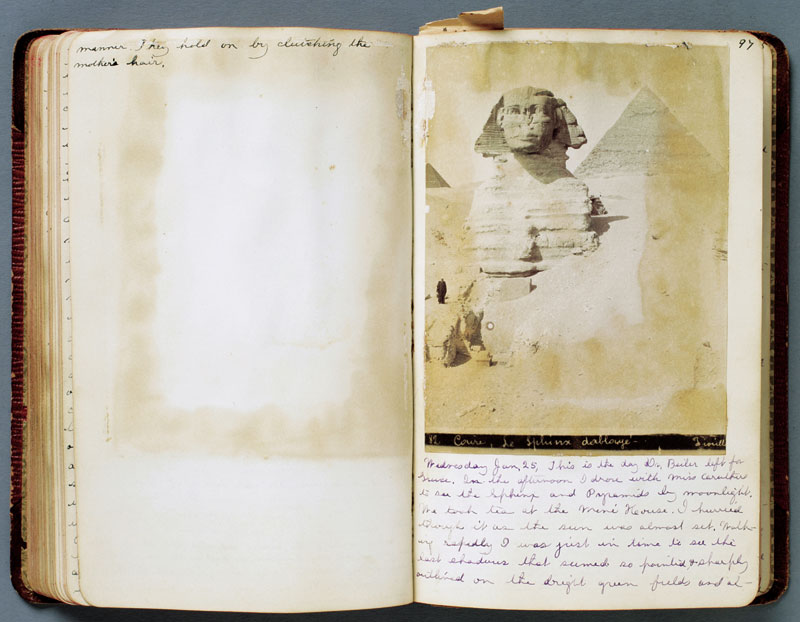 manner. They hold on by clutching the
mother's hair.
97
12 Caire, Le Sphinx
Wednesday Jan. 25, This is the day Dr. Beiler left for
In the afternoon I drove with Miss Caruthers
to see the Sphinx and Pyramids by moonlight.
We took tea at the Mené House. I hurried
through it as the sun was almost set. Walk-
ing rapidly I was just in time to see the
last shadows that seemed so pointed & sharply
outlined on the bright green fields and al-